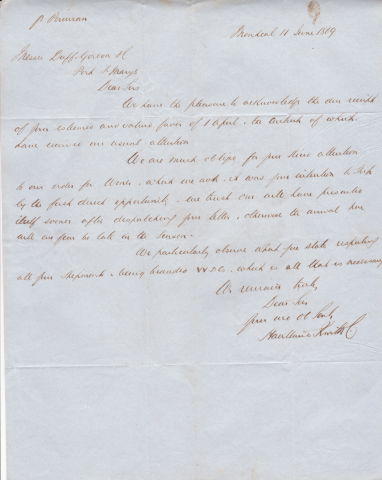 p Peruvian
Montreal 11 June 1849
Messrs Duff Gordon &C
Port St Marys
Dear Sirs
We have the pleasure to acknowledge the due receipt
of your esteemed and valued favor of 1 April - the contents of which
have received our usual attention
We are much obliged for your kind attention
to our order for Wine, which we note, it was your intention to ship
by the first direct opportunity - we trust one will have presented
itself sooner after dispatching your letter, otherwise the arrival here
will we fear be late in the season.
We particularly observe what you state respecting
all your shipments being branded which is all that is necessary
We remain truly,
Dear Sirs
your Obt Servts